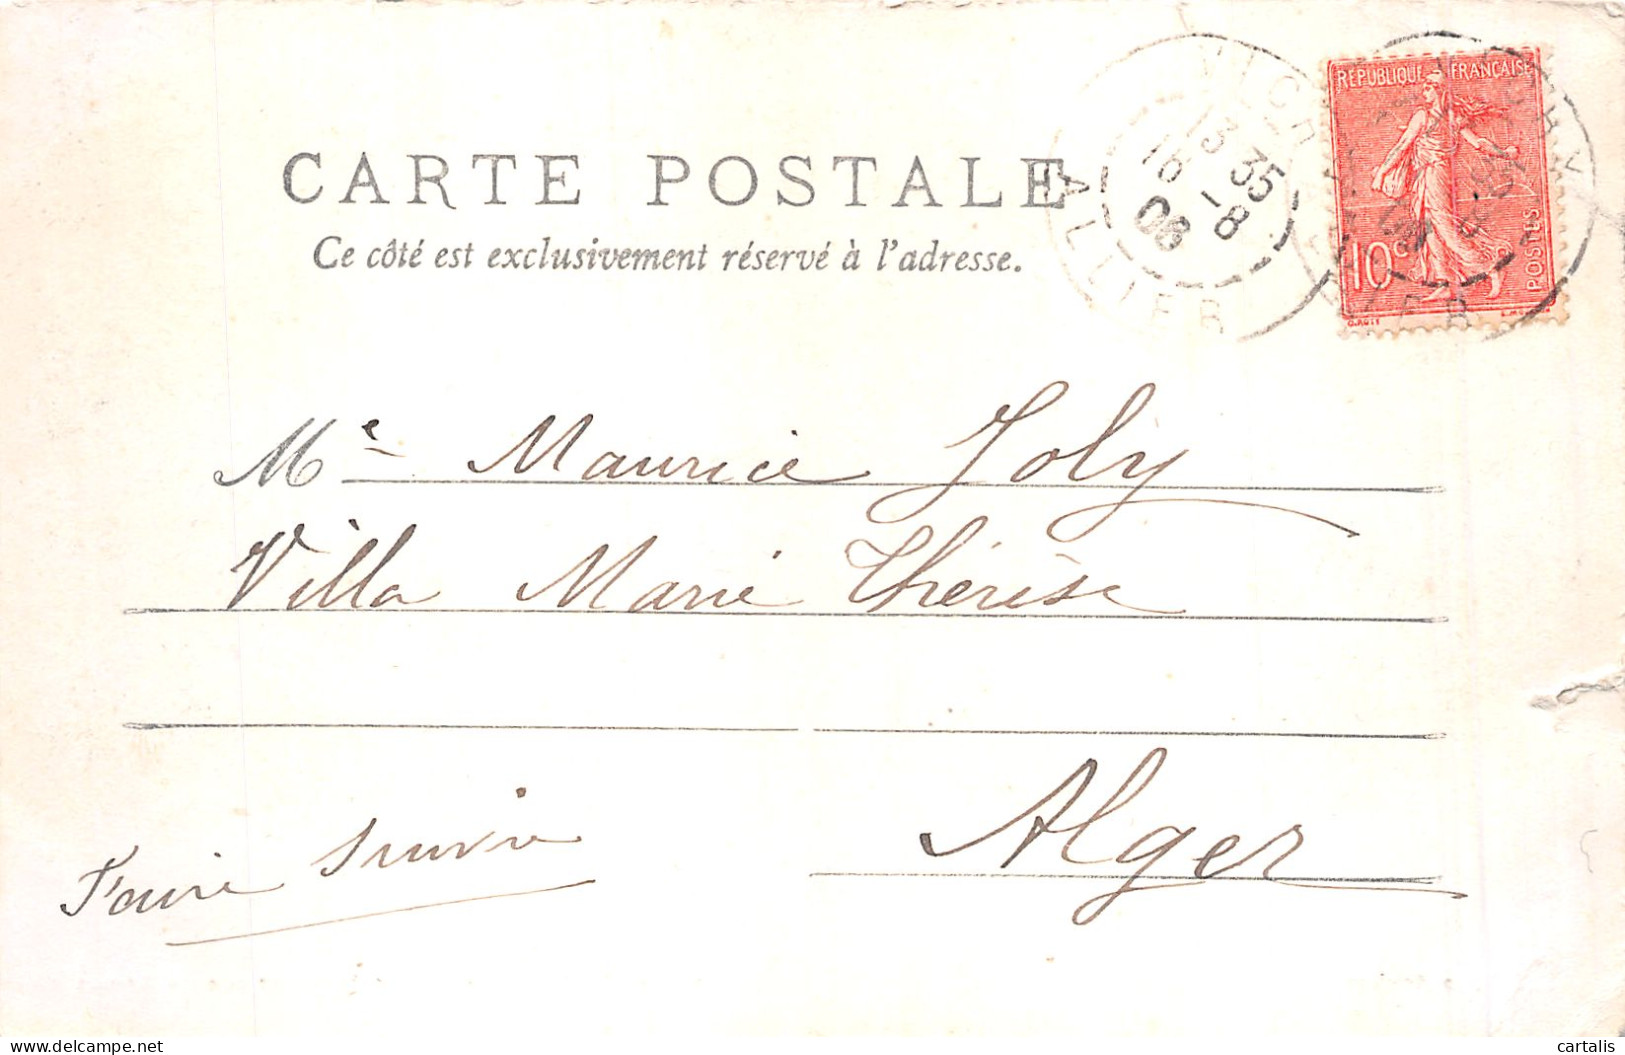 CARTE POSTALE
Ce côté est exclusivement réservé à l'adresse.
VICHY
13 35
16 -8
06
ALLIER
RÉPUBLIQUE FRANÇAISE
10c
POSTES
O. ROTY
Me Maurice Joly
Villa Marie Thérèse
Alger
Faire suivre
cartalis